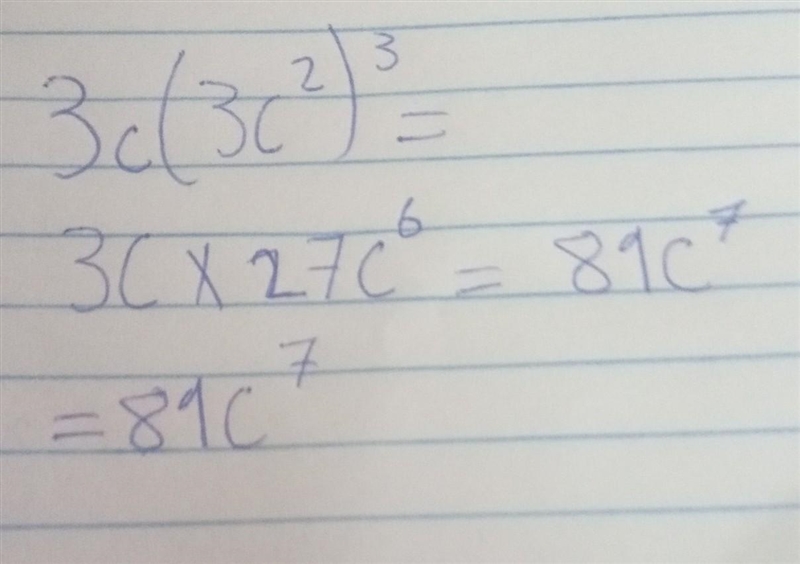 3c(3c²)³=
3c×27c⁶ = 81c⁷
=81c⁷